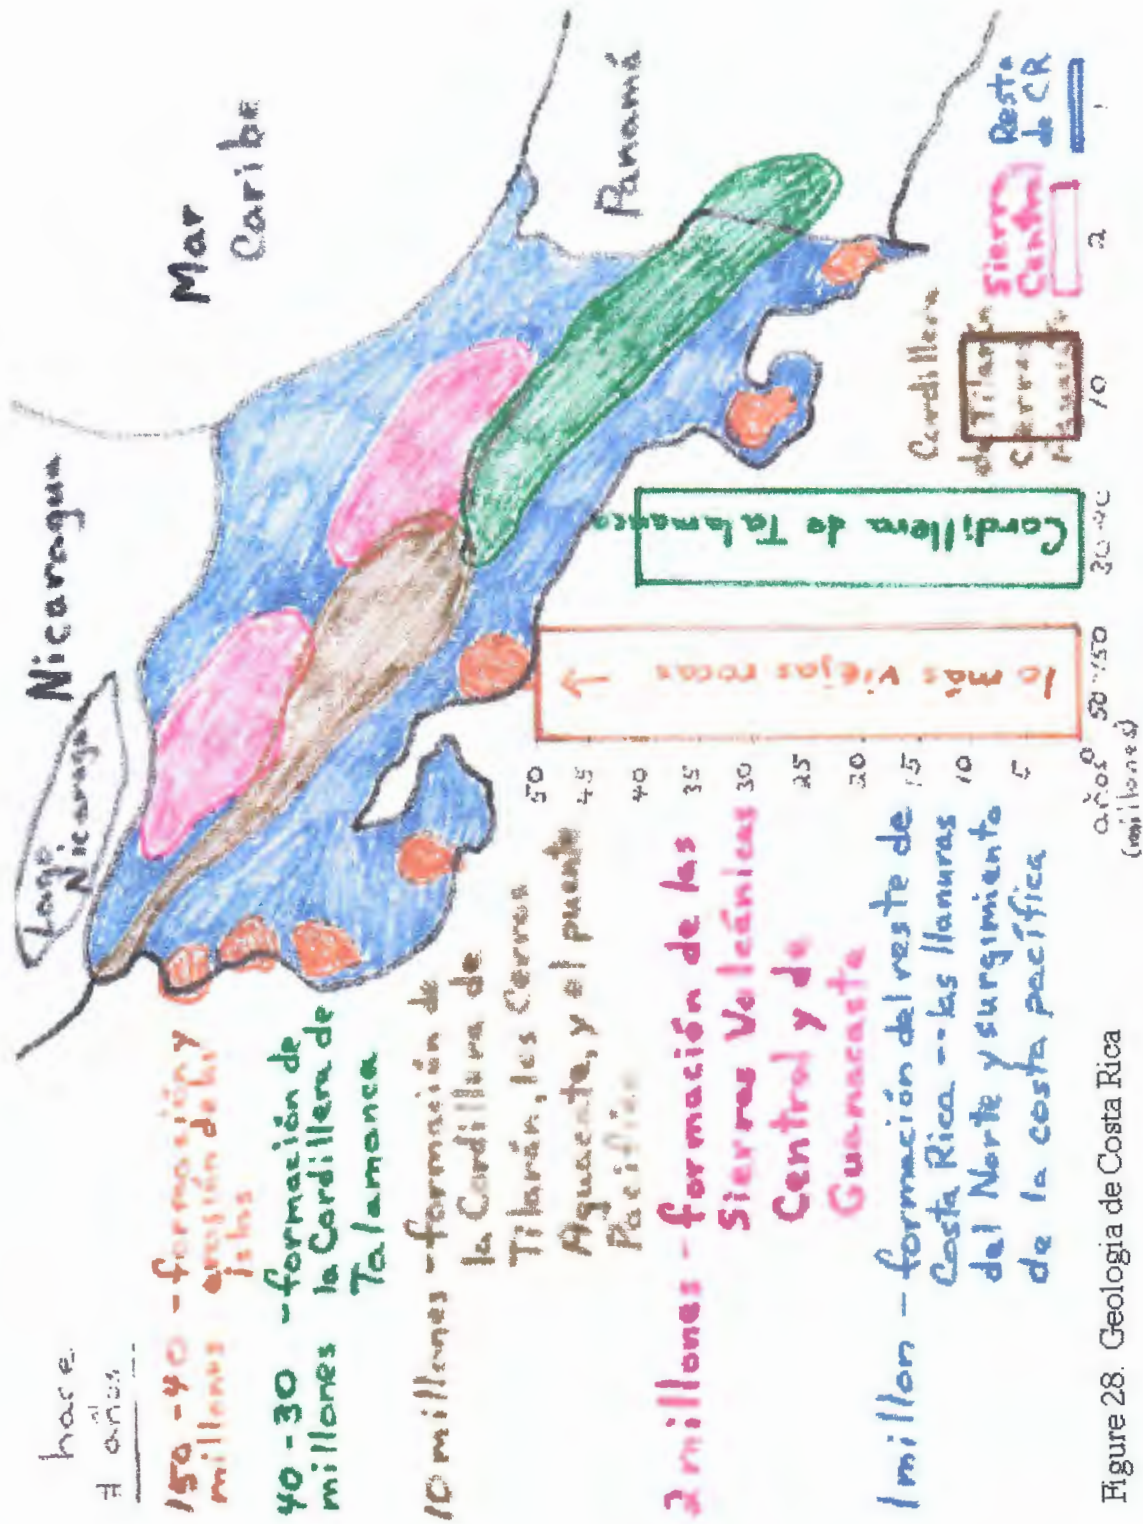 hace
# años
150-40 - formación y
millones erosión de las
islas
40-30 - formación de
millones la Cordillera de
Talamanca
10 millones - formación de
la Cordillera de
Tilarán, los Cerros
Aguacate, y el puente
Pacífico
2 millones - formación de las
Sierras Volcánicas
Central y de
Guanacaste
1 millon - formación del reste de
Costa Rica -- las llanuras
del Norte y surgimiento
de la costa pacífica
Lago
Nicaragua
Nicaragua
Mar
Caribe
Panamá
50
45
40
35
30
25
20
15
10
5
0
años
(millones)
lo más viejas rocas
50-150
Cordillera de Talamanca
30-40
Cordillera
de Tilarán
Cerros
10
Sierra
Central
2
Resto
de CR
1
Figure 28. Geologia de Costa Rica